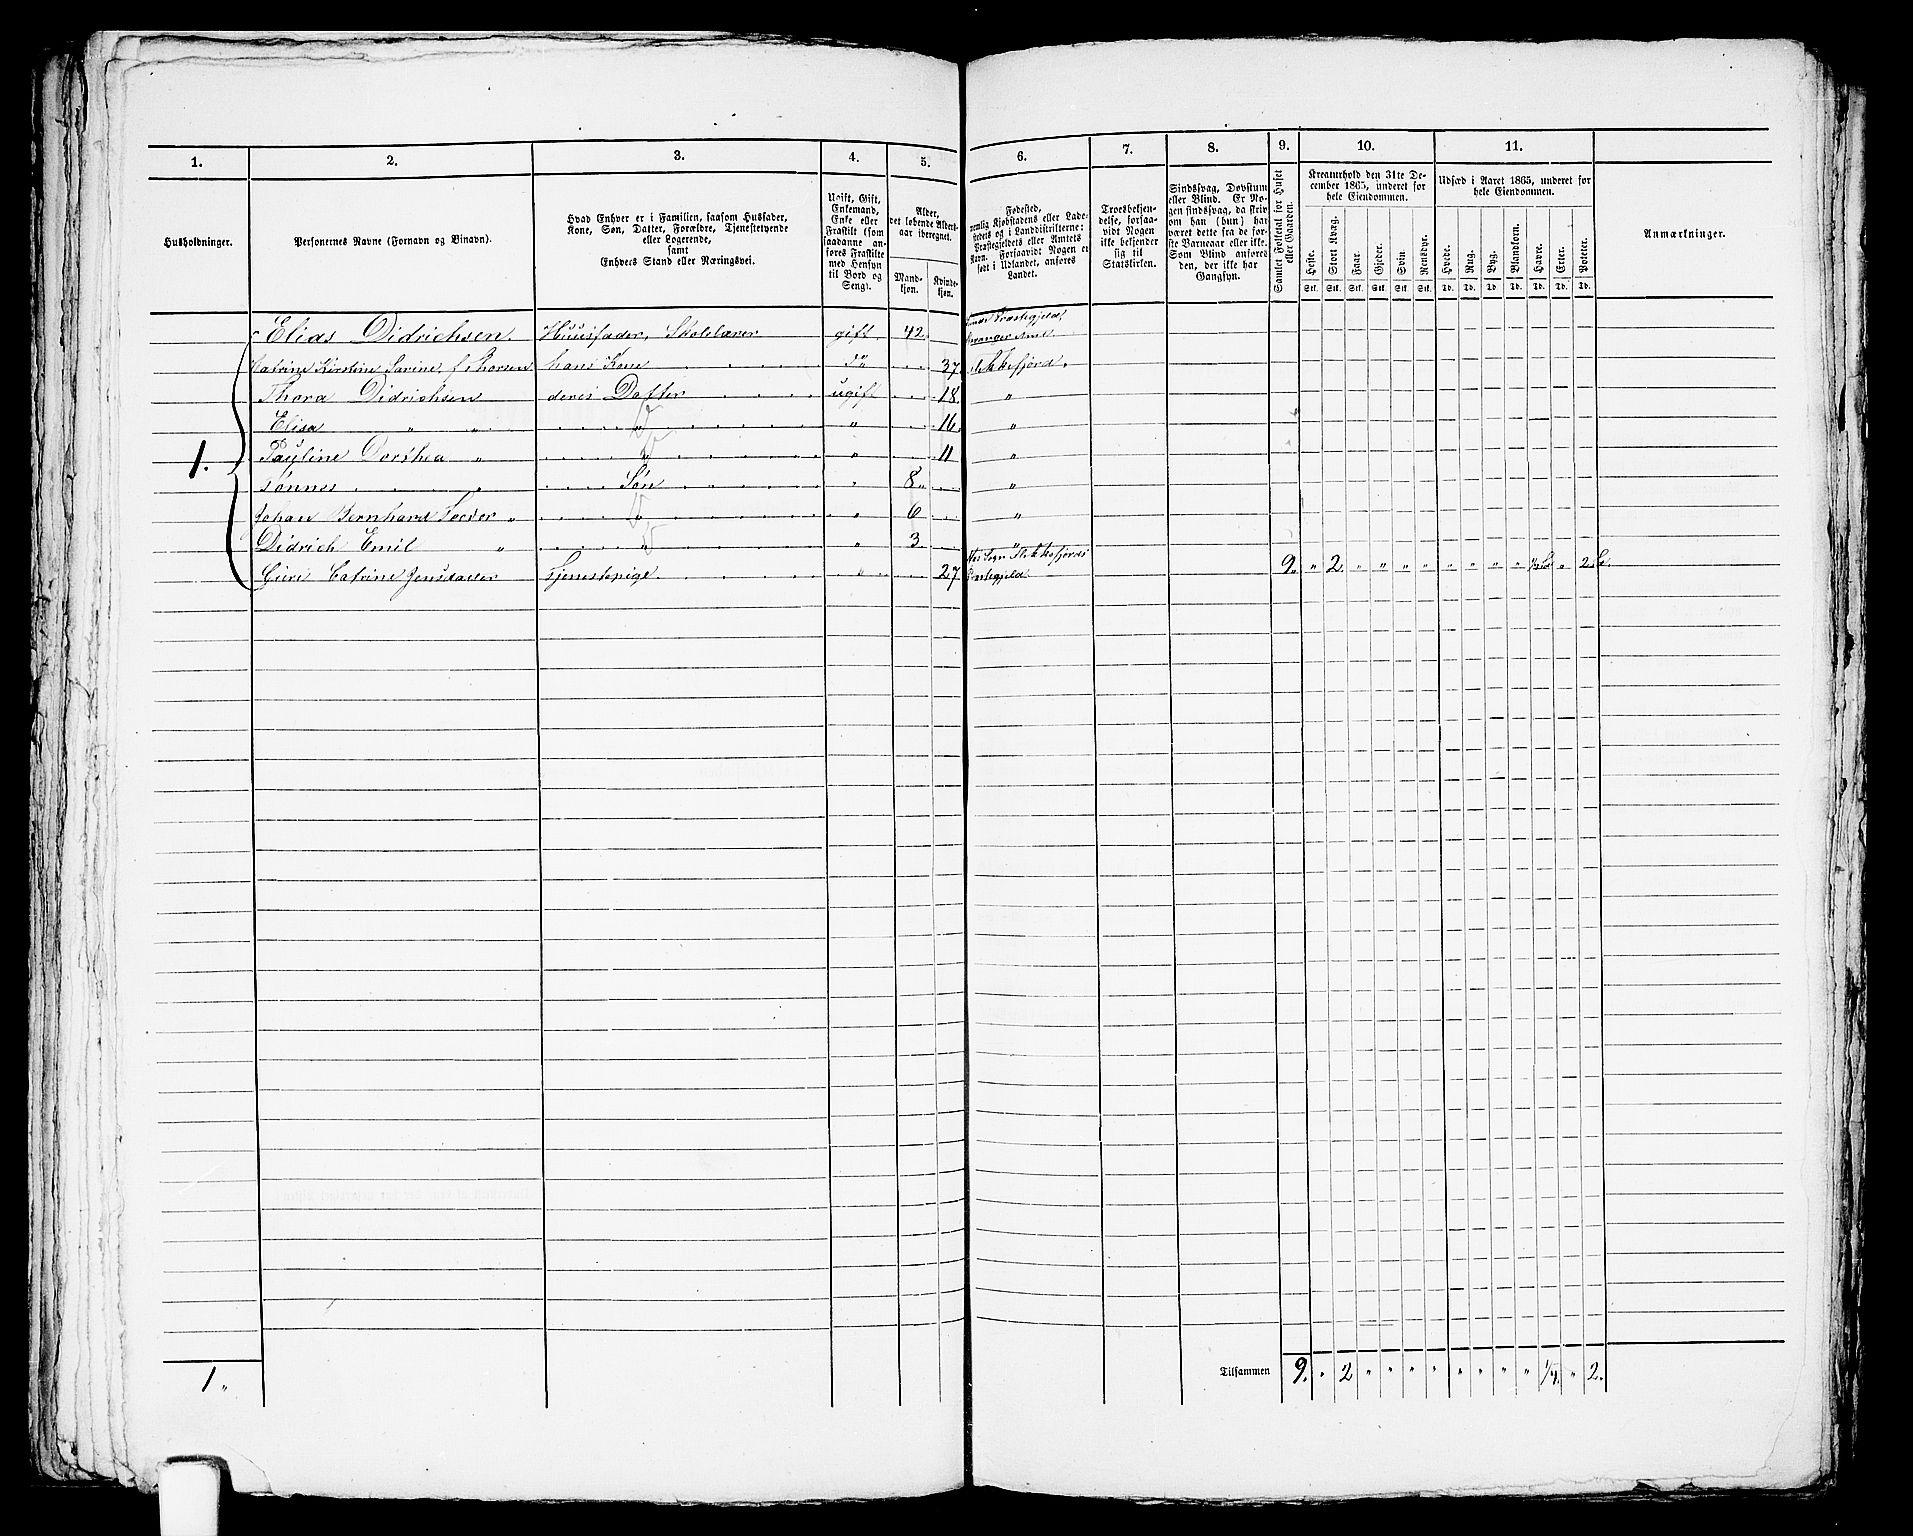 1. 2. 3. 4. 5. 6. 7. 8. 9. 10. 11.
Husholdninger.
Personernes Navne (Fornavn og Binavn).
Hvad Enhver er i Familien, saasom Husfader,
Kone, Søn, Datter, Forældre, Tjenestetyende
eller Logerende,
samt
Enhvers Stand eller Næringsvei.
Ugift, Gift,
Enkemand,
Enke eller
Fraskilt (som
saadanne an-
føres Fraskilte
med Hensyn
til Bord og
Seng).
Alder,
det løbende Alders-
aar iberegnet.
Mand-
kjøn.
Kvinde-
kjøn.
Fødested,
nemlig Kjøbstadens eller Lade-
stedets og i Landdistrikterne:
Præstegjeldets eller Amtets
Navn. Forsaavidt Nogen er
født i Udlandet, anføres
Landet.
Troesbekjen-
delse, forsaa-
vidt Nogen
ikke bekjender
sig til
Statskirken.
Sindssvag, Døvstum
eller Blind. Er No-
gen sindssvag, da skriv
om han (hun) har
været dette fra de før-
ste Barneaar eller ikke.
Som Blind anføres
den, der ikke har
Gangsyn.
Samlet Folketal for Huset
eller Gaarden.
Kreaturhold den 31te De-
cember 1865, underet for
hele Eiendommen.
Heste. Stort Kvæg. Faar. Gjeder. Svin Rensdyr.
Stk. Stk. Stk. Stk. Stk. Stk.
Udsæd i Aaret 1865, underet for
hele Eiendommen.
Hvede. Rug. Byg. Blandkorn. Havre. Erter. Poteter.
Td. Td. Td Td. Td. Td. Td.
Anmærkninger.
Elias Didrichsen. Huusfader, Skolelærer gift 42. Præstegjeld, Stavanger Amt
Catrine Kirstine Sarine, f. Thorsen hans Kone d" 37. Flekkefjord.
Thora Didrichsen deres Datter ugift 18. "
Elisa " " " " 16. "
1. Pauline Dorthea " " " 11 "
Tønnes " Søn " 8. "
Johan Bernhard " " " 6 "
Didrich Emil " " " 3. "
Guri Catrine Jensdatter Tjenestepige " 27 Sogn Flekkefjords Præstegjeld 9. " 2 " " " " " " " " " 2
1 " Tilsammen 9. " 2 " " " " " " " " " 2.